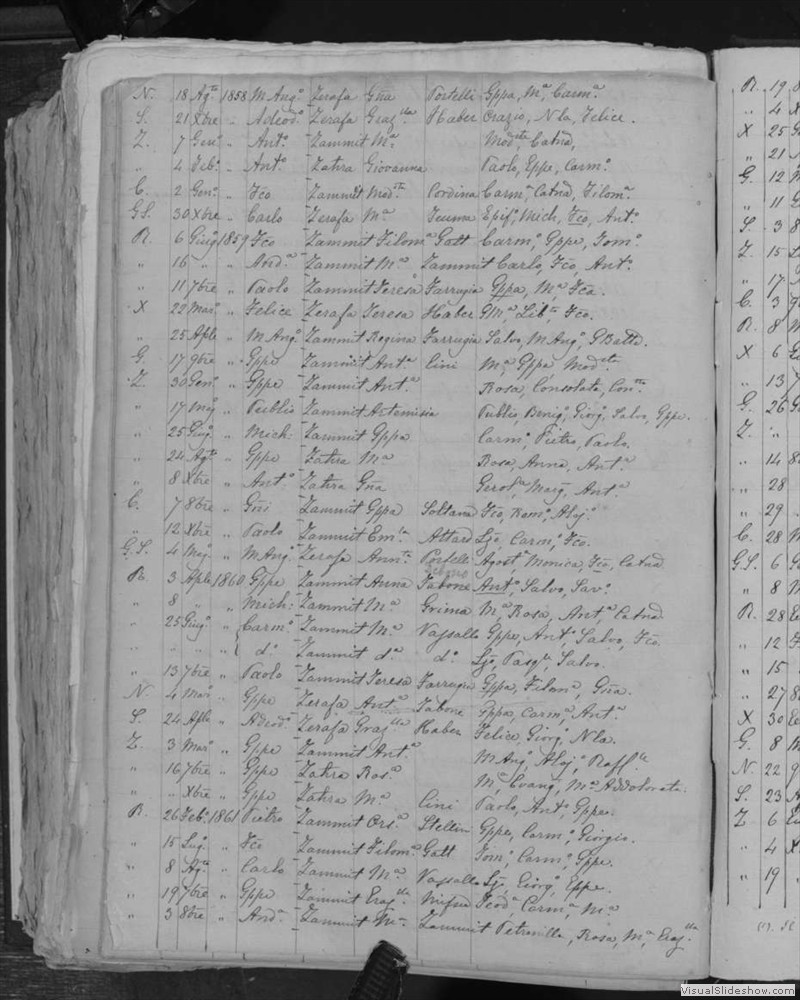 N. 18 Agto 1858 M Ango Zerafa Gña Portelli Gppa, Ma, Carma
S. 21 Xbre " Adeodo Zerafa Grazlla Haber Orazio, Nla, Felice.
Z. 7 Geno " Anto Zammit Ma Modsta Catna,
" 4 Febo " Anto Zahra Giovanna Paolo, Gppe, Carmo
C. 2 Geno " Fco Zammit Modta Cordina Carma, Catna, Filoma
G.S. 30 Xbre " Carlo Zerafa Ma Epifo, Mich, Fco, Anto
R. 6 Giugo 1859 Fco Zammit Filoma Gatt Carmo, Gppe, Tomo
" 16 " " Anda Zammit Ma Zammit Carlo, Fco, Anto
" 11 7bre " Paolo Zammit Teresa Farrugia Gppa, Ma, Fca.
X 22 Maro " Felice Zerafa Teresa Haber Libo, Fco.
" 25 Aple " M Ango Zammit Regina Farrugia Salvo, M Ango, G Batta.
G. 17 9bre " Gppe Zammit Anta Cini Ma Gppa Modsta
Z. 30 Geno " Gppe Zammit Anta Rosa, Consolata, Conta
" 17 Mago " Publio Zammit Artemisia Publio, Benigo, Giorgo, Salvo, Gppe.
" 25 Giugo " Mich: Zammit Gppa Carmo, Pietro, Paolo.
" 24 Agto " Gppe Zahra Ma Rosa, Anna, Anta
" 8 Xbre " Anto Zahra Gña Anta
C. 7 8bre " Gñi Zammit Gppa Soldana Fco, Romo, Alojo
" 12 Xbre " Paolo Zammit Emla Attard Ljo, Carmo, Fco.
G.S. 4 Mago " M Ango Zerafa Annta Portelli Agosto, Monica, Fco, Catna
R. 3 Aple 1860 Gppe Zammit Anna Tabone Anto, Salvo, Savo
" 8 " " Mich: Zammit Ma Grima Ma Rosa, Anta, Catna
" 25 Giugo " Carmo Zammit Ma Vassallo Gppe, Anto Salvo, Fco
" " " " do Zammit da do Ljo, Pasqe Salvo.
" 13 7bre " Paolo Zammit Teresa Farrugia Gppa, Filoma, Gña.
N. 4 Maro " Gppe Zerafa Anta Tabone Gppa, Carma, Anta
S. 24 Aple " Adeodo Zerafa Grazlla Haber Felice, Giorgo, Nla.
Z. 3 Maro " Gppe Zammit Anta M Ango, Alojo, Raffle
" 16 7bre " Gppe Zahra Rosa Ma Evang, Ma Addolorata.
" " Xbre " Gppe Zahra Ma Cini Paolo, Anto, Gppe.
R. 26 Febo 1861 Pietro Zammit Orsa Stellin Gppe, Carmo, Giorgio.
" 15 Lugo " Fco Zammit Filoma Gatt Tomo, Carmo, Gppe.
" 8 Agto " Carlo Zammit Ma Vassallo Ljo, Giorgo, Gppe.
" 19 7bre " Gppe Zammit Grazlla Mifsud Teoda, Carma, Ma
" 3 8bre " Anda Zammit Ma Zammit Petronilla, Rosa, Ma, Grazlla
R. 19
" 4
X 25
" 21
G. 12
" 11
S. 3
Z. 15
" 17
C. 3
R. 8
X 6
" 13
G. 26
Z. "
" 14
" 28
" 29
C. 28
G.S. 6
" 8
R. 28
" 12
" 15
" 27
X 30
G. 8
N. 22
S. 23
Z. 6
" 4
" 19
VisualSlideshow.com